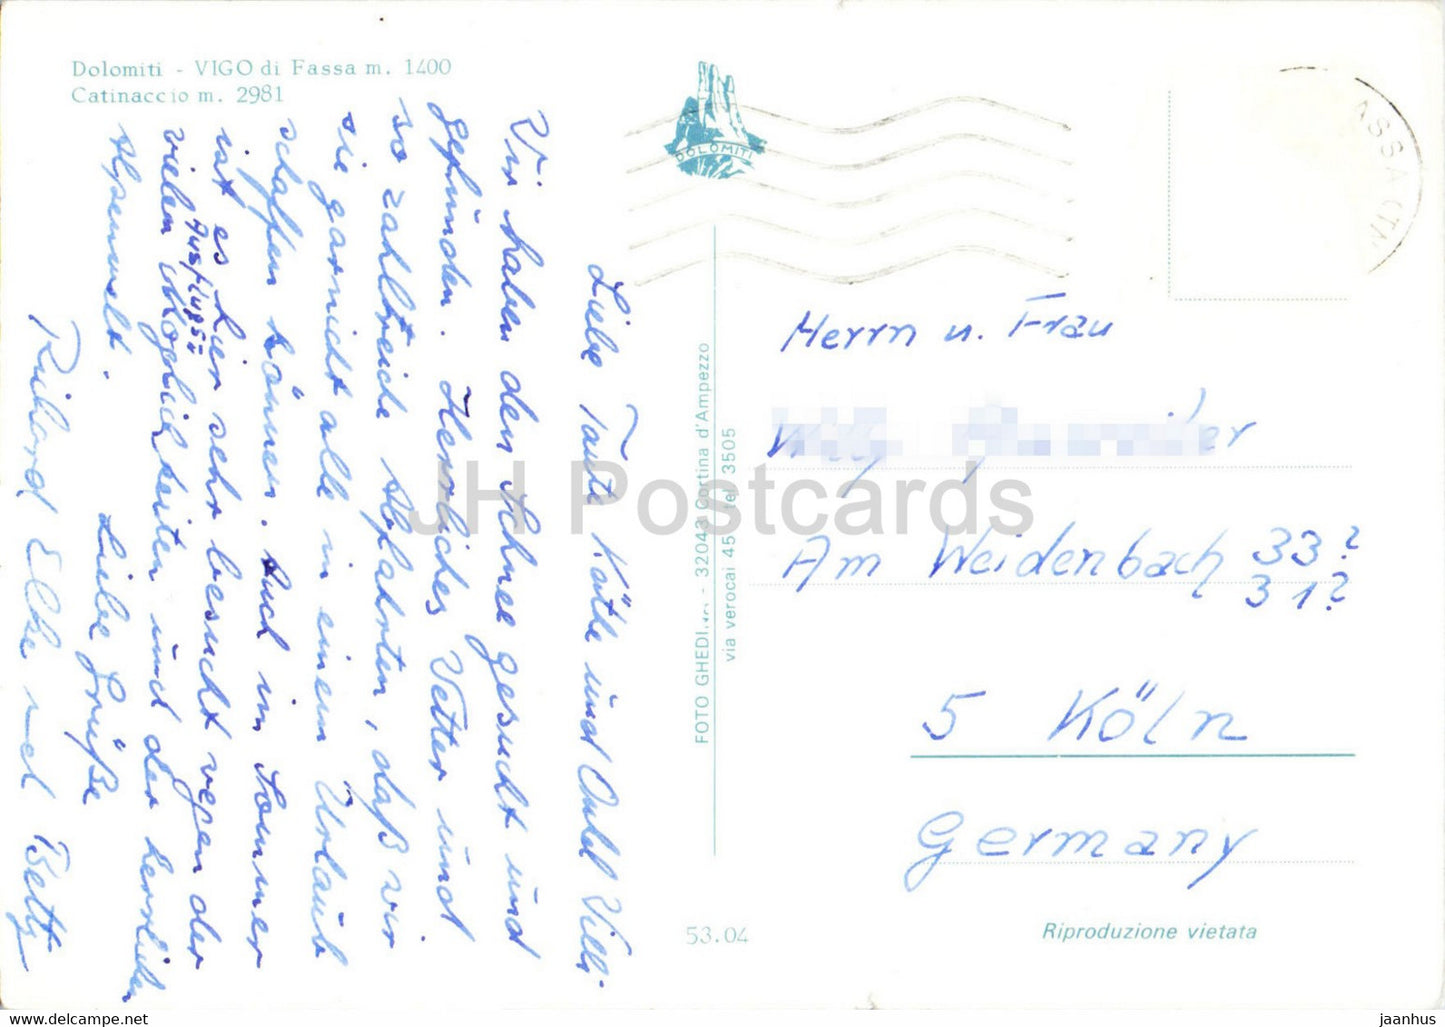 Dolomiti - VIGO di Fassa m. 1400
Catinaccio m. 2981
DOLOMITI
Liebe Tante Käthe und Onkel Willi
Wir haben den Schnee gesucht und
gefunden. Herrliches Wetter und
so zahlreiche Abfahrten, daß wir
sie garnicht alle in einem Urlaub
schaffen können. Auch im Sommer
ist es hier sehr besucht wegen der
vielen Ausflugs=
möglichkeiten und der herrlichen
Alpenwelt.
Liebe Grüße
Richard Elke und Betty
FOTO GHEDI - 32043 Cortina d'Ampezzo
via verocai 45 tel 3505
53.04
Herrn u. Frau
Am Weidenbach 33?
31?
5 Köln
Germany
Riproduzione vietata
JH Postcards
www.hippostcard.com
jaanhus